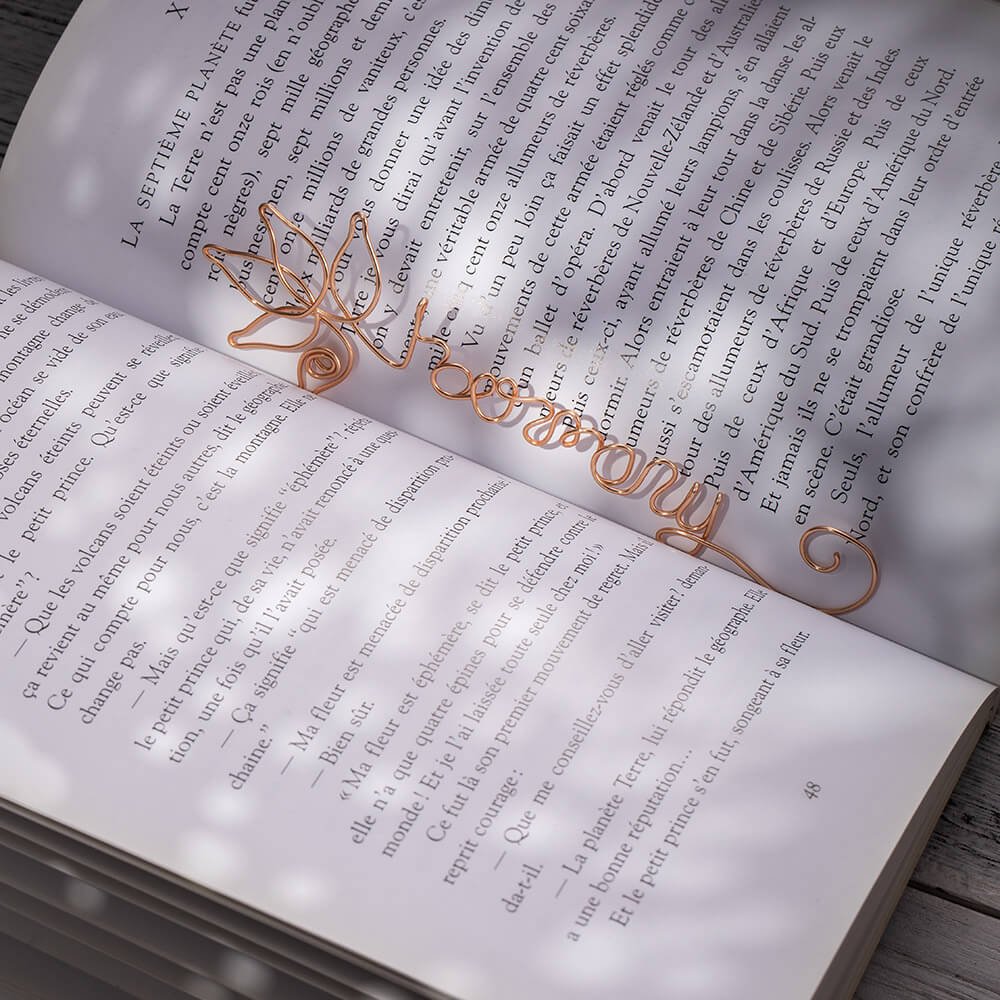 les livres
ne se démodent
montagne change
océan se vide de son
éternelles.
volcans éteints peuvent se
le petit prince. Qu'est-ce que signifie
— Que les volcans soient éteints ou soient
ça revient au même pour nous autres, dit le géographe.
Ce qui compte pour nous, c'est la montagne. Elle
change pas.
— Mais qu'est-ce que signifie “éphémère”? répét
le petit prince qui, de sa vie, n'avait renoncé à une ques-
tion, une fois qu'il l'avait posée.
— Ça signifie “qui est menacé de disparition pro-
chaine.”
— Ma fleur est menacée de disparition prochaine
— Bien sûr.
«Ma fleur est éphémère, se dit le petit prince, et
elle n'a que quatre épines pour se défendre contre le
monde! Et je l'ai laissée toute seule chez moi!»
Ce fut là son premier mouvement de regret. Mais il
reprit courage:
— Que me conseillez-vous d'aller visiter? deman-
da-t-il.
— La planète Terre, lui répondit le géographe. Elle
a une bonne réputation…
Et le petit prince s'en fut, songeant à sa fleur.
48
X
LA SEPTIÈME PLANÈTE fut
La Terre n'est pas une plan
compte cent onze rois (en n'oubl
rois nègres), sept mille géographe
sept millions et dem
millions de vaniteux, c'
de grandes personnes.
vous donner une idée des dim
vous dirai qu'avant l'invention de
devait entretenir, sur l'ensemble
véritable armée de quatre cent soixa
cent onze allumeurs de réverbères.
Vu d'un peu loin ça faisait un effet splendid
mouvements de cette armée étaient réglés comme c
ballet d'opéra. D'abord venait le tour des all
de réverbères de Nouvelle-Zélande et d'Australie
Puis ceux-ci, ayant allumé leurs lampions, s'en allaient
dormir. Alors entraient à leur tour dans la danse les al-
lumeurs de réverbères de Chine et de Sibérie. Puis eux
aussi s'escamotaient dans les coulisses. Alors venait le
tour des allumeurs de réverbères de Russie et des Indes.
Puis de ceux d'Afrique et d'Europe. Puis de ceux
d'Amérique du Sud. Puis de ceux d'Amérique du Nord
Et jamais ils ne se trompaient dans leur ordre d'entrée
en scène. C'était grandiose.
Seuls, l'allumeur de l'unique réverbère
Nord, et son confrère de l'unique